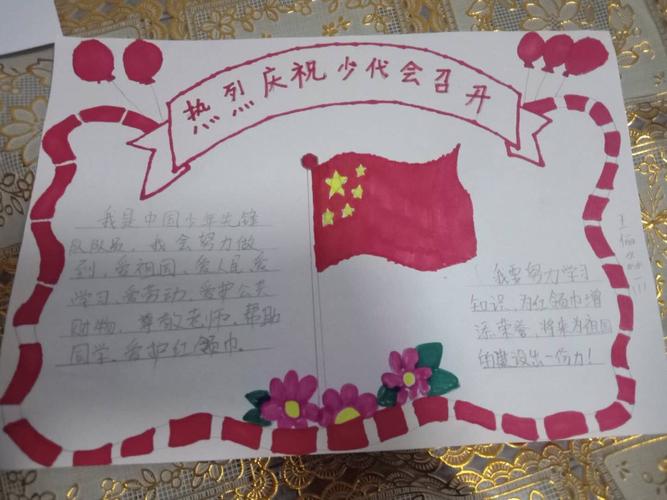 热烈庆祝少代会召开
我是中国少年先锋
队队员，我会努力做
到，爱祖国，爱人民，爱
学习，爱劳动，爱护公共
财物，尊敬老师，帮助
同学，爱护红领巾。
我要努力学习
知识，为红领巾增
添荣誉，将来为祖国
的建设出一份力！